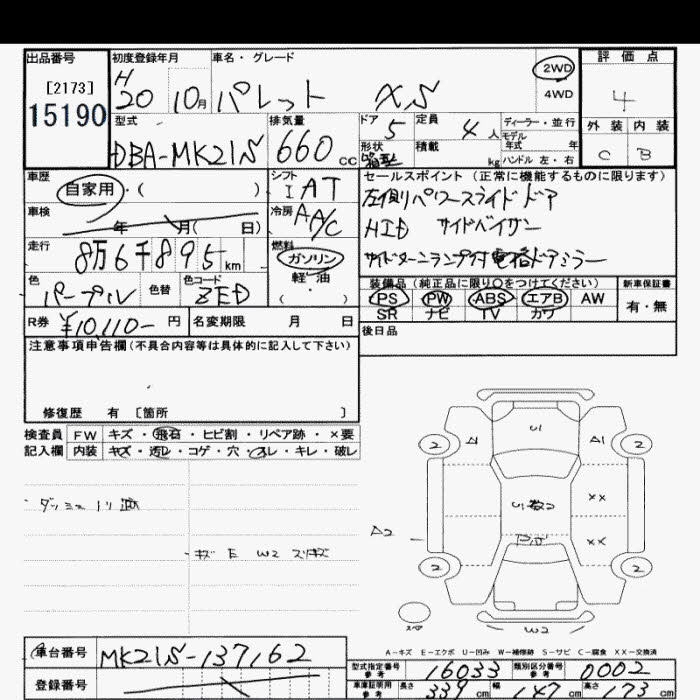 出品番号 初度登録年月 車名・グレード 評価点
[2173] H 2WD
15190 20 10月 パレット XS 4WD 4
型式 排気量 ドア 5 定員 4人 ディーラー・並行 外装 内装
DBA-MK21S 660cc 形状 箱型 積載 kg モデル年式 年 C B
ハンドル 左・右
車歴 自家用・( ) シフト I AT セールスポイント(正常に機能するものに限ります)
車検 年 月( 日) 冷房 A/C 左側パワースライドドア
HID サイドバイザー
走行 8万6千895km 燃料 ガソリン サイドターンランプ付電格ドアミラー
軽・油
色 パープル 色替 色コード ZED ( ・ ) 装備品(純正品に限り○をつけてください) 新車保証書
PS PW ABS エアB AW 有・無
R券 ¥10,110- 円 名変期限 月 日 SR ナビ TV カワ
注意事項申告欄(不具合内容等は具体的に記入して下さい) 後日品
修復歴 有 [箇所 ]
検査員 FW キズ・飛石・ヒビ割・リペア跡・×要
記入欄 内装 キズ・汚レ・コゲ・穴・スレ・キレ・破レ
U1
2 A1 A1 2
ダッシュ トリ跡 XX
A2 XX
キズ E W2 スリキズ
2 2
W2
A-キズ E-エクボ U-凹み W-補修跡 S-サビ C-腐食 XX-交換済
車台番号 MK21S-137162 型式指定番号 参考 16033 類別区分番号 参考 0002
登録番号 車庫証明用 参考 長さ 339cm 幅 147cm 高さ 173cm